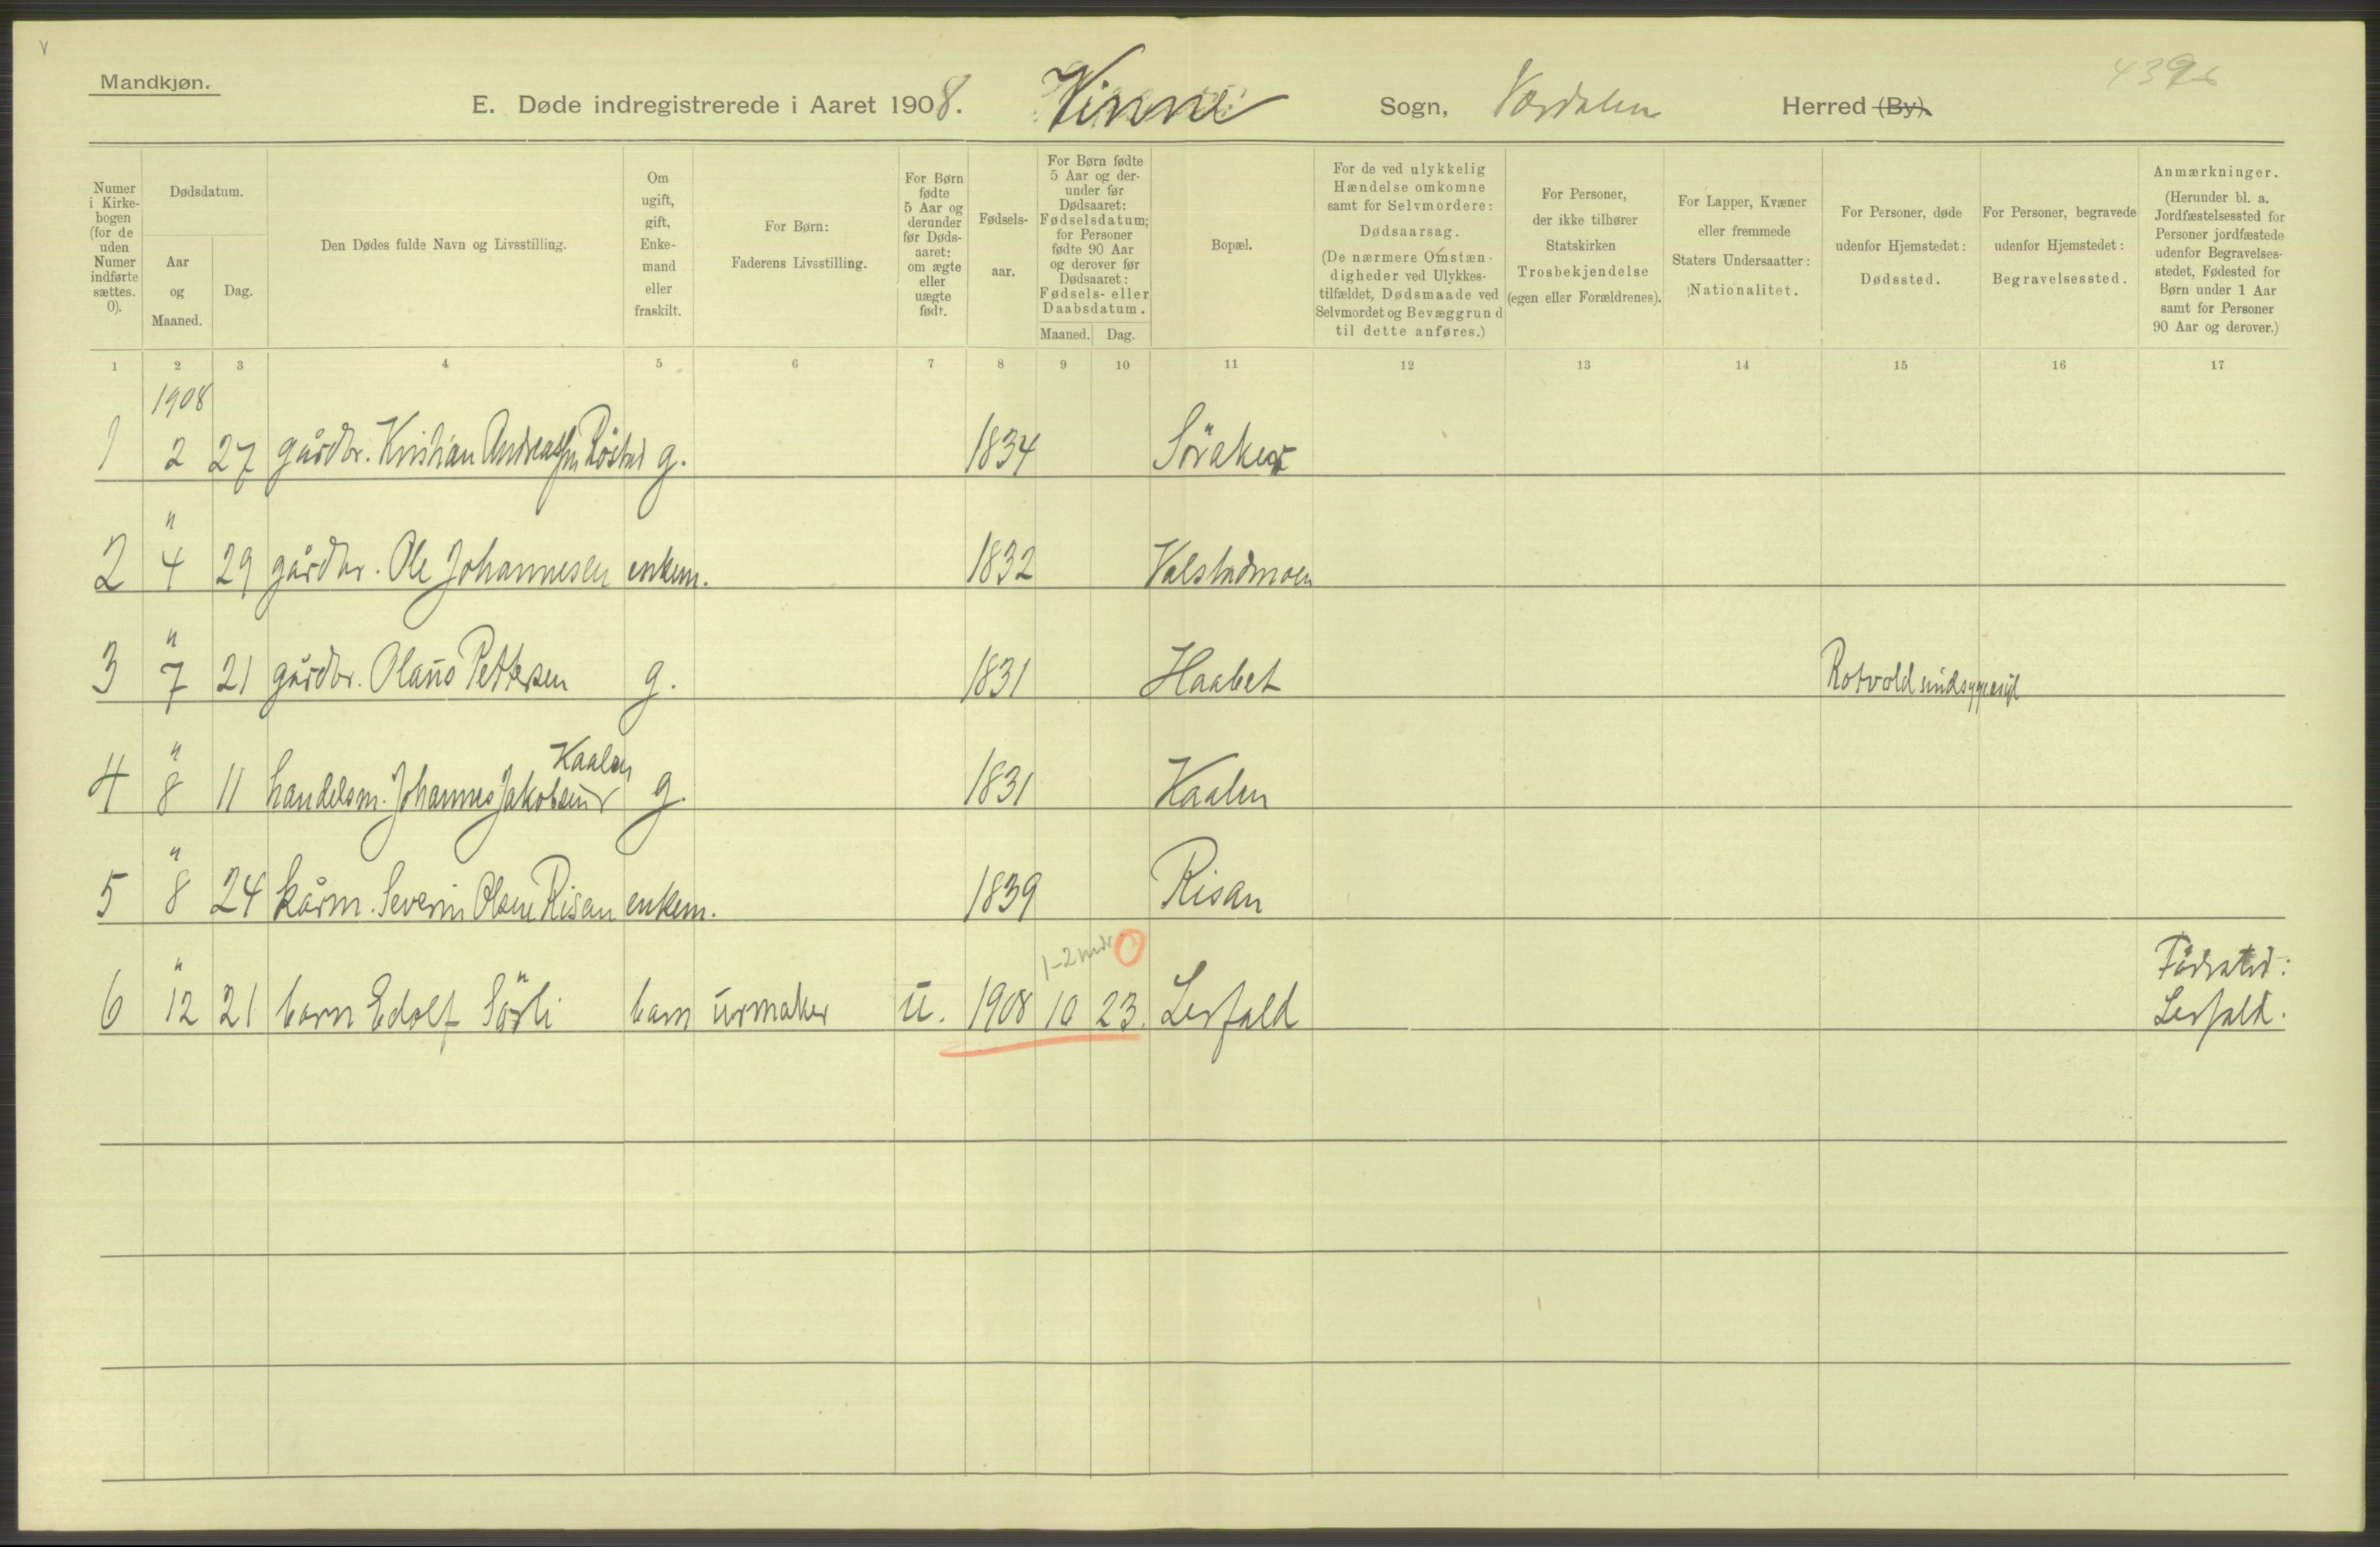 Mandkjøn.
E. Døde indregistrerede i Aaret 1908. Vinne Sogn, Værdalen Herred (By).
Numer i Kirke- bogen (for de uden Numer indførte sættes. 0).
Dødsdatum.
Aar og Maaned.
Dag.
Den Dødes fulde Navn og Livsstilling.
Om ugift, gift, Enke- mand eller fraskilt.
For Børn: Faderens Livsstilling.
For Børn fødte 5 Aar og derunder før Døds- aaret: om ægte eller uægte født.
Fødsels- aar.
For Børn fødte 5 Aar og der- under før Dødsaaret: Fødselsdatum; for Personer fødte 90 Aar og derover før Dødsaaret: Fødsels- eller Daabsdatum.
Maaned. Dag.
Bopæl.
For de ved ulykkelig Hændelse omkomne samt for Selvmordere: Dødsaarsag. (De nærmere Omstæn- digheder ved Ulykkes- tilfældet, Dødsmaade ved Selvmordet og Bevæggrund til dette anføres.)
For Personer, der ikke tilhører Statskirken Trosbekjendelse (egen eller Forældrenes).
For Lapper, Kvæner eller fremmede Staters Undersaatter: Nationalitet.
For Personer, døde udenfor Hjemstedet: Dødssted.
For Personer, begravede udenfor Hjemstedet: Begravelsessted.
Anmærkninger. (Herunder bl. a. Jordfæstelsessted for Personer jordfæstede udenfor Begravelses- stedet, Fødested for Børn under 1 Aar samt for Personer 90 Aar og derover.)
1 2 3 4 5 6 7 8 9 10 11 12 13 14 15 16 17
1908
1 2 27 gårdbr. Kristian Andreassen Röstad g. 1834 Söråker
"
2 4 29 gårdbr. Ole Johannesen enkem. 1832 Valstadmoen
"
3 7 21 gårdbr. Olaus Pettersen g. 1831 Haabet Rotvold sindsygeasyl
" Kaalen
4 8 11 handelsm. Johannes Jakobsen g. 1831 Kaalen
"
5 8 24 kårm. Severin Olsen Risan enkem. 1839 Risan
" 1-2 mdr 0 Födested:
6 12 21 barn Edolf Sörli barn urmaker u. 1908 10 23. Lesfald Lesfald.